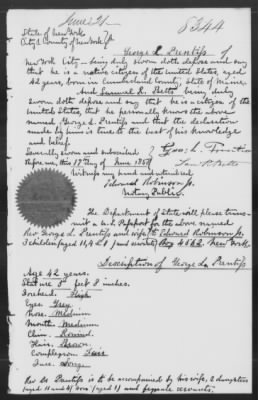 8344
State of New York
City & County of New York ss
George L. Prentiss of
New York City - being duly sworn doth depose and say
that he is a native citizen of the United States, aged
42 years, born in Cumberland County, State of Maine.
And Samuel R. Betts being duly
sworn doth depose and say that he is a citizen of the
United States, that he personally knows the above
named George L. Prentiss and that the declaration
made by him is true to the best of his knowledge
and belief.
Severally sworn and subscribed
before me, this 17 day of June 1858
Geo. L. Prentiss
Sam R Betts
Witness my hand and notarial
Edward Robinson Jr.
Notary Public
The Department of State will please trans-
mit a U.S. Passport for the above named
Rev George L. Prentiss and wife to Edward Robinson Jr.
3 children aged 11, 4 & 1 and Box 4662 New York
Description of George L. Prentiss
Age 42 years.
Stature 5 feet 8 inches.
Forehead: High
Eyes: Grey
Nose: Medium
Mouth: Medium
Chin: Round
Hair: Brown.
Complexion: Fair
Face: Long.
Rev G L Prentiss is to be accompanied by his wife, 2 daughters
aged 11 and 4, son (aged 1) and female servants.